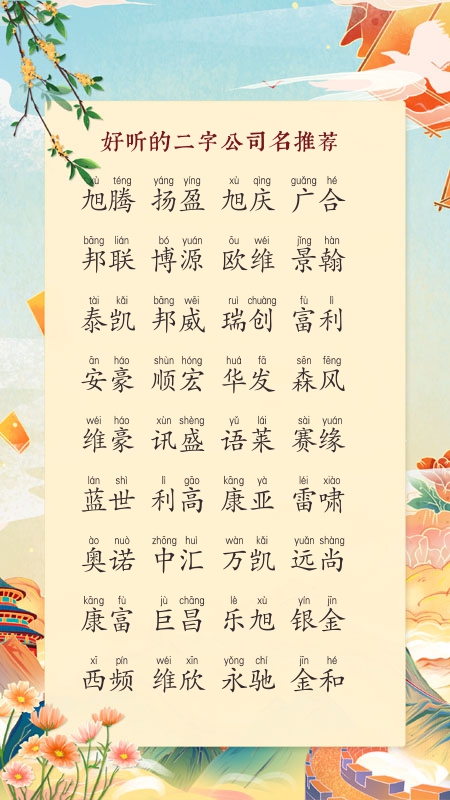 好听的二字公司名推荐
xù téng yáng yíng xù qìng guǎng hé
旭腾 扬盈 旭庆 广合
bāng lián bó yuán ōu wéi jǐng hàn
邦联 博源 欧维 景翰
tài kǎi bāng wēi ruì chuàng fù lì
泰凯 邦威 瑞创 富利
ān háo shùn hóng huá fā sēn fēng
安豪 顺宏 华发 森风
wéi háo xùn shèng yǔ lái sài yuán
维豪 讯盛 语莱 赛缘
lán shì lì gāo kāng yà léi xiào
蓝世 利高 康亚 雷啸
ào nuò zhōng huì wàn kǎi yuǎn shàng
奥诺 中汇 万凯 远尚
kāng fù jù chāng lè xù yín jīn
康富 巨昌 乐旭 银金
xī pín wéi xīn yǒng chí jīn hé
西频 维欣 永驰 金和